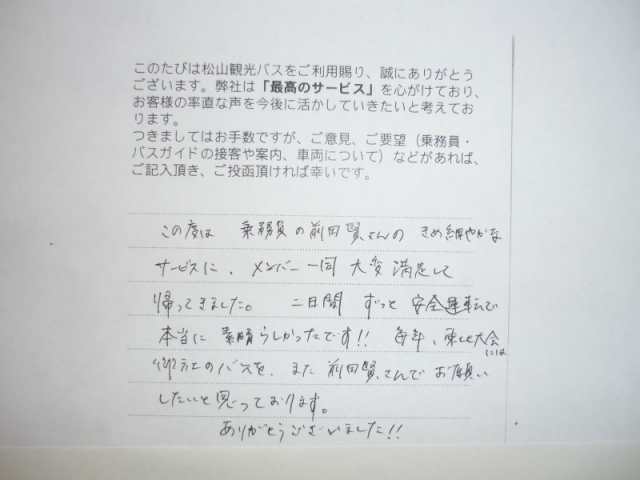 このたびは松山観光バスをご利用賜り、誠にありがとう
ございます。弊社は「最高のサービス」を心がけており、
お客様の率直な声を今後に活かしていきたいと考えてお
ります。
つきましてはお手数ですが、ご意見、ご要望（乗務員・
バスガイドの接客や案内、車両について）などがあれば、
ご記入頂き、ご投函頂ければ幸いです。
この度は 乗務員の前田賢さんの きめ細やかな
サービスに、メンバー一同 大変満足して
帰ってきました。 二日間 ずっと 安全運転で
本当に 素晴らしかったです!! 毎年、東北大会
には
御社のバスを、また 前田賢さんでお願い
したいと思っております。
ありがとうございました!!